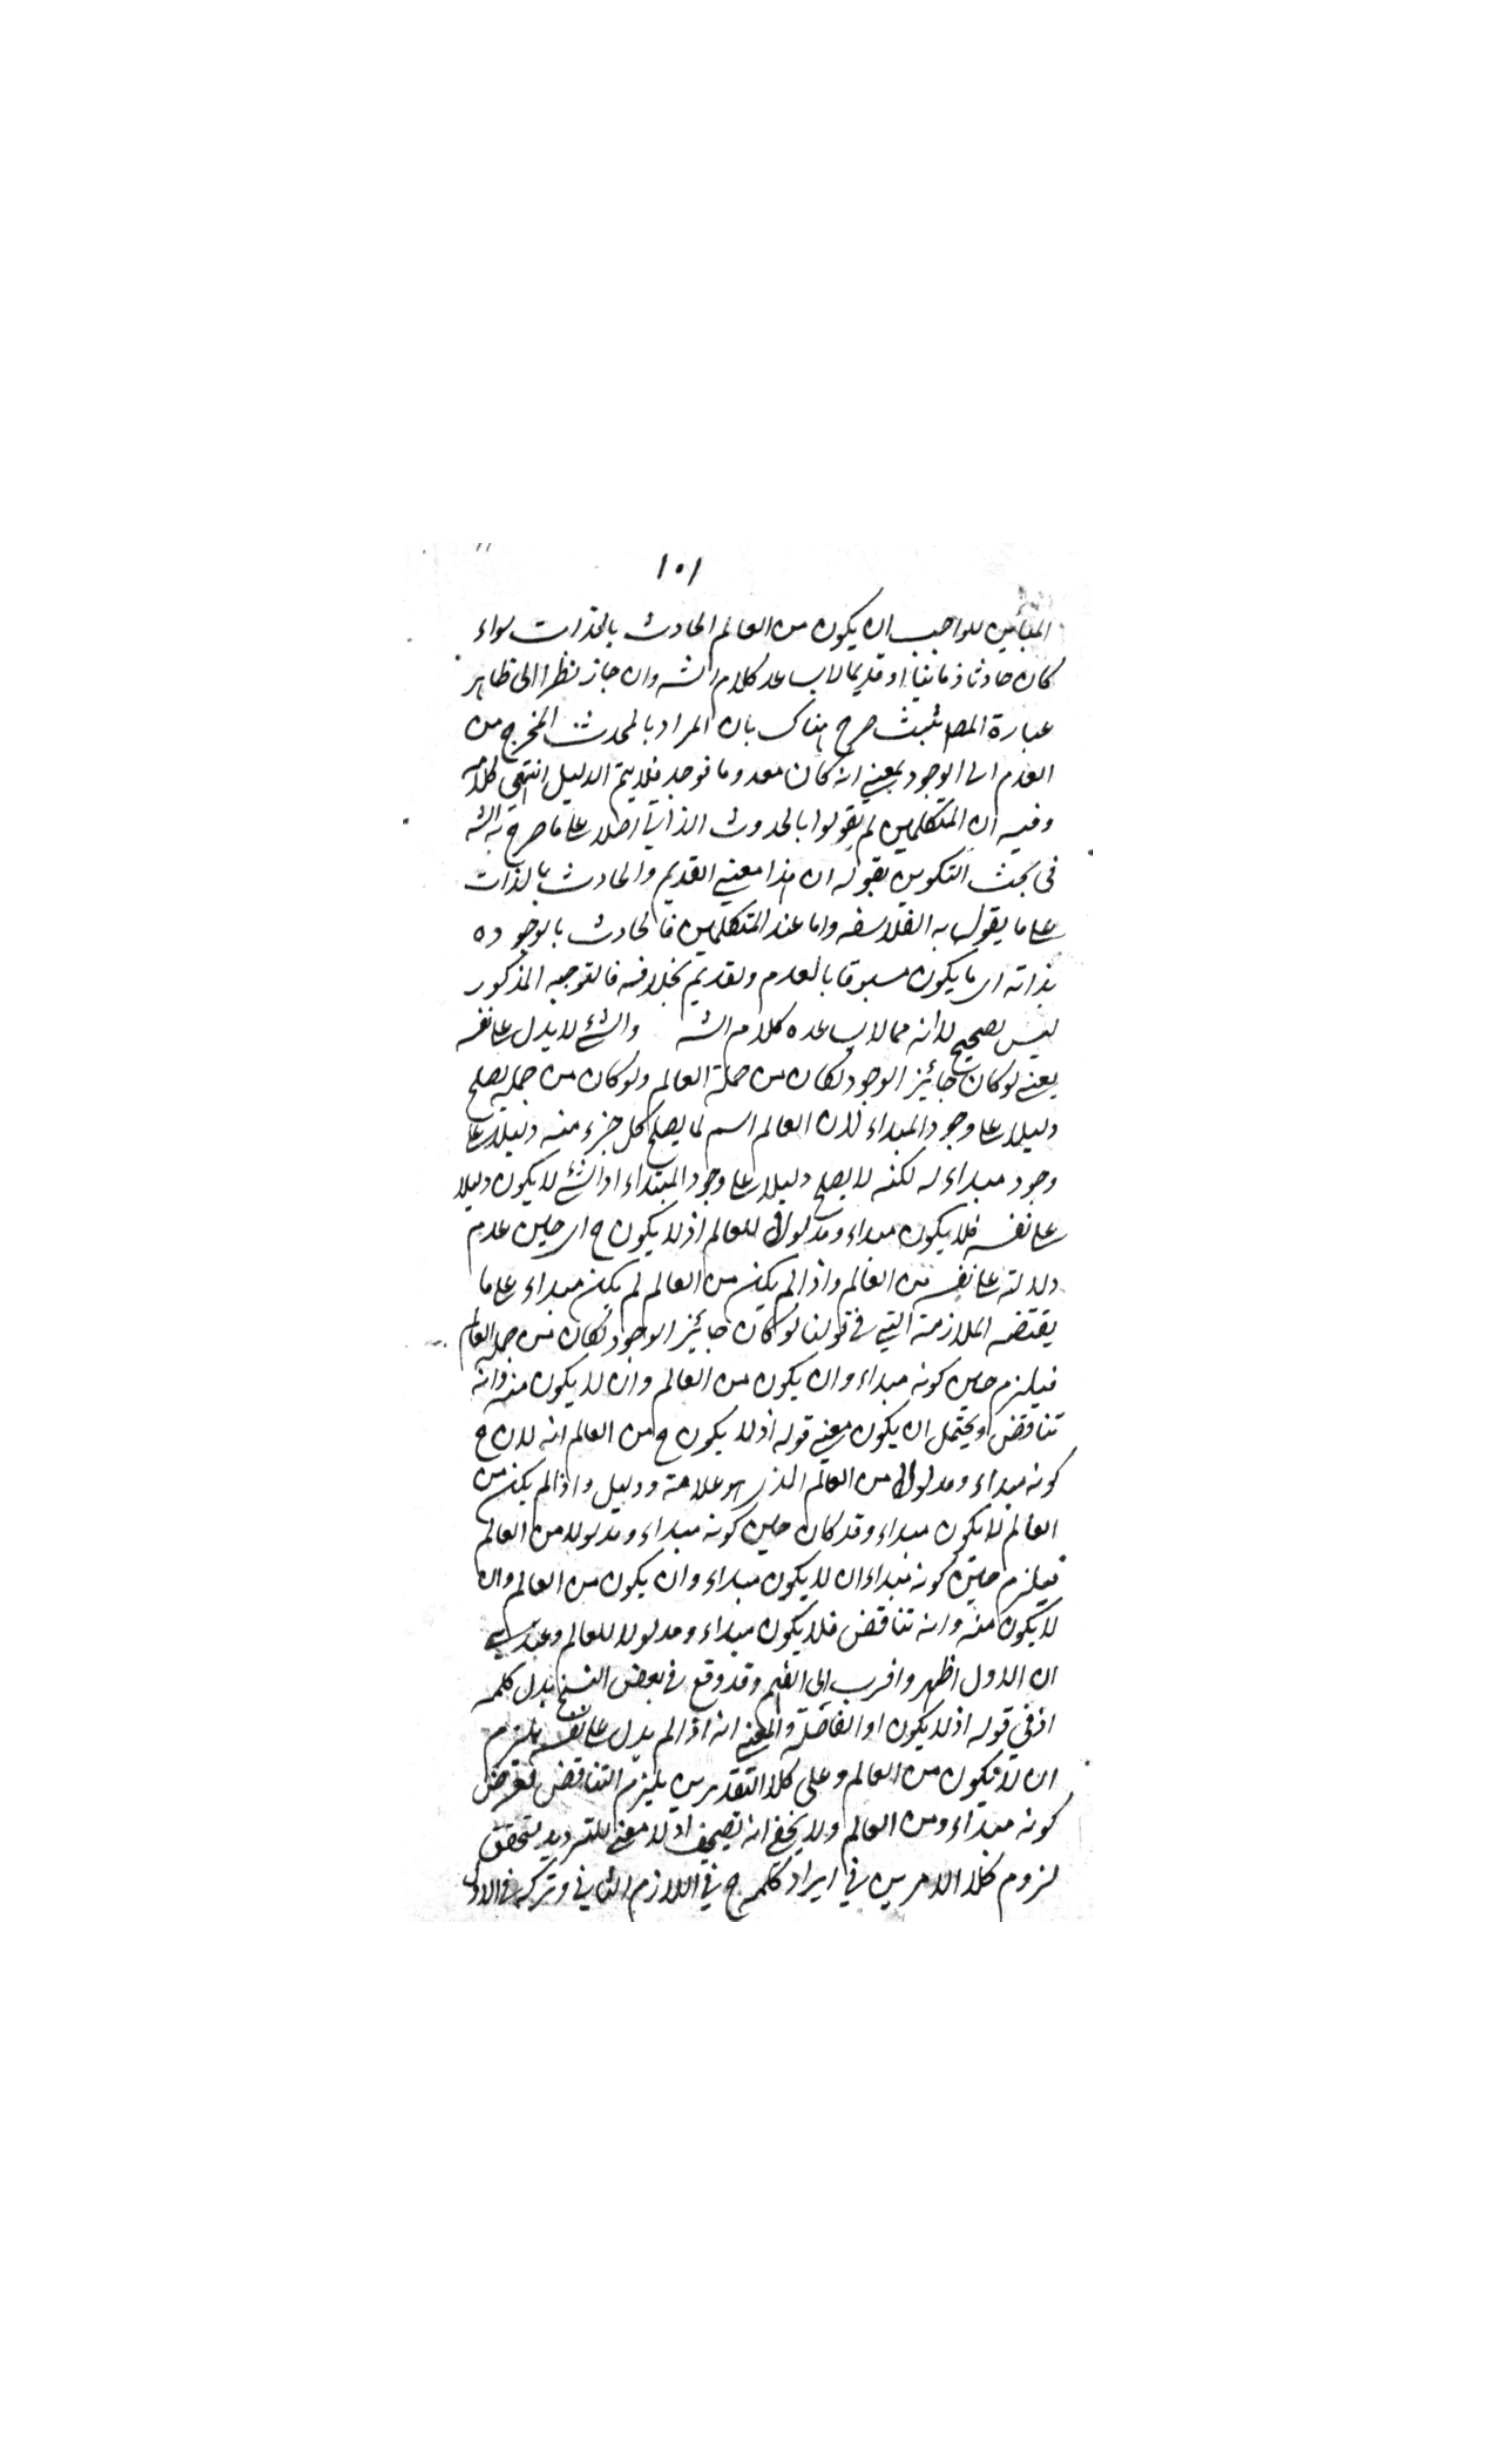 ١٠١
المباين للواجب ان يكون من العالم الحادث بالذات سواء
كان حادثا زمانيا او قديما لا يساعد كلام الشه وان جاز نظرا الى ظاهر
عبارة المصه حيث صرح هناك بان المراد بالمحدث المخرج من
العدم الى الوجود بمعنى انه كان معدوما فوجد فلا يتم الدليل انتهى كلامه
وفيه ان المتكلمين لم يقولوا بالحدوث الذاتى اصلا على ما صرح به الشه
فى بحث التكوين بقوله ان هذا معنى القديم والحادث بالذات
على ما يقول به الفلاسفه واما عند المتكلمين فالحادث ما لوجوده
بداية اى ما يكون مسبوقا بالعدم والقديم بخلافه فالتوجيه المذكور
ليس بصحيح لا انه مما لا يساعده كلام الشه والشئ لا يدل على نفسه
يعنى لو كان جائز الوجود لكان من جملة العالم ولو كان من جملته يصلح
دليلا على وجود المبداء لان العالم اسم لما يصلح كل جزء منه دليلا على
وجود مبداء له لكنه لا يصلح دليلا على وجود المبتداء اذ الشئ لا يكون دليلا
على نفسه فلا يكون مبداء ومدلولا للعالم اذ لا يكون ح اى حين عدم
دلالته على نفسه من العالم واذا لم يكن من العالم لم يكن مبداء على ما
يقتضيه الملازمة التى فى قولنا لو كان جائز الوجود لكان من جملة العالم
فيلزم حين كونه مبداء وان يكون من العالم وان لا يكون منه وانه
تناقض او يحتمل ان يكون معنى قوله اذ لا يكون ح من العالم انه لان ح
كونه مبداء ومدلولا من العالم الذى هو علامة ودليل واذا لم يكن من
العالم لا يكون مبداء وقد كان حين كونه مبداء ومدلولا من العالم
فيلزم حين كونه مبداء ان لا يكون مبداء وان يكون من العالم وان
لا يكون منه وانه تناقض فلا يكون مبداء ومدلولا للعالم وعندى
ان الاول اظهر واقرب الى الفهم وقد وقع فى بعض النسخ بدل كلمه
اذ فى قوله اذ لا يكون او الفاصلة والمعنى انه اذا لم يدل على نفسه يلزم
ان لا يكون من العالم وعلى كلا التقديرين يلزم التناقض لفرض
كونه مبداء ومن العالم ولا يخفى انه تصحيف اذ لا معنى للترديد لتحقق
لزوم كلا الامرين فى ايراد كلمه ح فى اللازم الثانى وتركه فى الاول